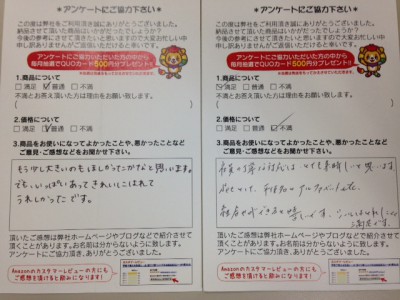 *アンケートにご協力下さい*
この度は弊社をご利用頂き誠にありがとうございました。
納品させて頂いた商品はいかがだったでしょうか?
今後の参考にさせて頂きたく思いますので大変お忙しい中
申し訳ありませんがご返信いただけると幸いです。
アンケートにご協力いただいた方の中から
毎月抽選でQUOカード500円分プレゼント!!
1.商品について
□満足 □普通 □不満
不満とお答え頂いた方は理由をお願い致します。
2.価格について
□満足 □普通 □不満
3.商品をお使いになってよかったことや、悪かったことなど
ご意見・ご感想などをお聞かせ下さい。
もう少し大きいのもほしかったかなと思います。
でも、いっぱいあってきれいにとれて
うれしかったです。
頂いたご感想は弊社ホームページやブログなどで紹介させて
頂くことがあります。お名前は分からないように致します。
アンケートにご協力頂き、ありがとうございました。
Amazonのカスタマーレビューの方にも
ご感想を頂けると励みになります!
*アンケートにご協力下さい*
この度は弊社をご利用頂き誠にありがとうございました。
納品させて頂いた商品はいかがだったでしょうか?
今後の参考にさせて頂きたく思いますので大変お忙しい中
申し訳ありませんがご返信いただけると幸いです。
アンケートにご協力いただいた方の中から
毎月抽選でQUOカード500円分プレゼント!!
1.商品について
□満足 □普通 □不満
不満とお答え頂いた方は理由をお願い致します。
2.価格について
□満足 □普通 □不満
3.商品をお使いになってよかったことや、悪かったことなど
ご意見・ご感想などをお聞かせ下さい。
とても素晴しいと思います
頂いたご感想は弊社ホームページやブログなどで紹介させて
頂くことがあります。お名前は分からないように致します。
アンケートにご協力頂き、ありがとうございました。
Amazonのカスタマーレビューの方にも
ご感想を頂けると励みになります!